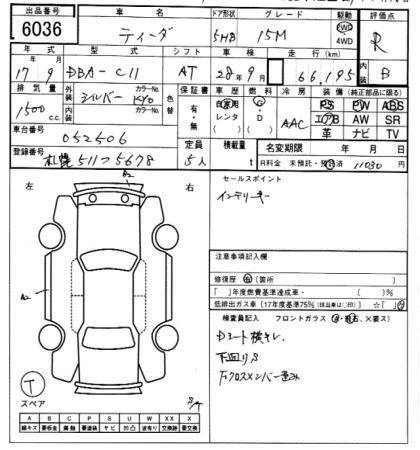 出品番号 車名 ドア形状 グレード 駆動 評価点
6036 ティーダ 5HB 15M 2WD 4WD R
年式 型式 シフト 車検 走行(km) 内装
17年 9月 DBA-C11 AT 28年 9月 66,195 B
排気量 外装 カラーNo. 色替 保証書 車歴 燃料 冷房 装備(純正部品に限る)
1500cc. シルバー KY0 有・無 自家用 レンタ G D AAC PS PW ABS
内装 カラーNo. エアB AW SR
車台番号 革 ナビ TV
052506
登録番号 定員 積載量 名変期限 年 月 日
札幌 511 5678 5人 t R料金 未預託・預託済 11030 円
左 右 セールスポイント
インテリキー
A2
注意事項記入欄
修復歴 有 (箇所 )
[ ]年度燃費基準達成車・
低排出ガス車(17年度基準75%(該当車は○印))
検査員記入 フロントガラス
A2
Dシート横キレ
下回りS
T
スペア
A B C P S U W X XX
線キズ 要板金 腐蝕 要塗装 サビ 凹凸 波有り 交換跡